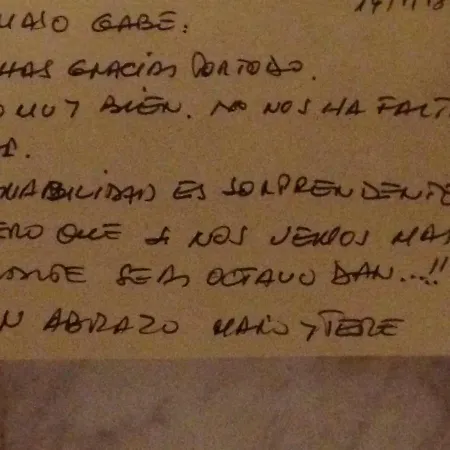 GABE:
HAS GRACIAS POR TODO.
O MUY BIEN. NO NOS HA FALT
ABILIDAD ES SORPRENDENTE
ERO QUE SI NOS VEMOS MAS
SEAS OCTAVO DAN...!!
N ABRAZO Y TERE